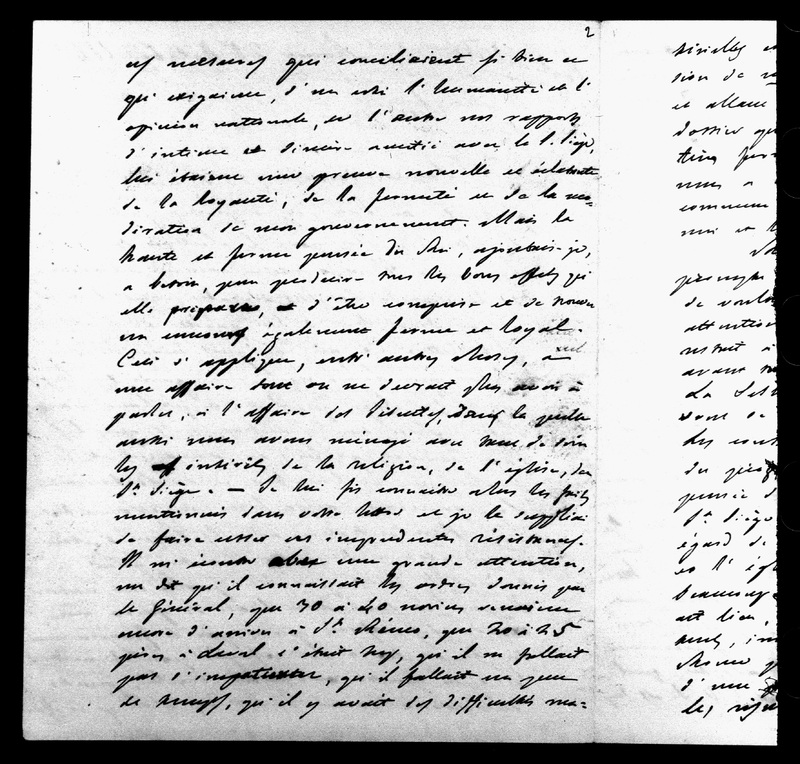 2
ces mesures qui conciliaient si bien ce
qui exigeaient, d'un coté l'humanité et l'
opinion nationale, et l'autre nos rapports
d'intime et sincère amitié avec le S. Siège,
lui étaient une preuve nouvelle et éclatante
de la loyauté, de la fermeté et de la mo-
dération de mon gouvernement. Mais la
haute et ferme pensée du Roi, ajoutais-je,
a besoin, pour produire tous les bons effets qu'
elle prépare, d'être comprise et de trouver
un concours également ferme et loyal.
Ceci s'applique, entre autres choses, à
une affaire dont on ne devrait plus avoir à
parler, à l'affaire des Jésuites, dans laquelle
aussi nous avons ménagé avec tant de soin
les intérêts de la religion, de l'église, du
St Siège. — Je lui fis connaître alors les faits
mentionnés dans votre lettre et je le suppliai
de faire cesser ces imprudentes résistances.
Il m'écouta avec une grande attention,
me dit qu'il connaissait les ordres donnés par
le Général, que 30 à 40 novices venaient
encore d'arriver à St. Rémo, que 20 à 25
pères à Laval c'était trop, qu'il ne fallait
pas s'impatienter, qu'il fallait un peu
de temps, qu'il y avait des difficultés ma-
sion de
et allant
dossier que
nous a
commune
moi et
de voulo
attention
avant
La
sont de
du
pensée d
St Siège
égard de
et l'égl
beaucoup
ont lieu,
Rome
d'une
les